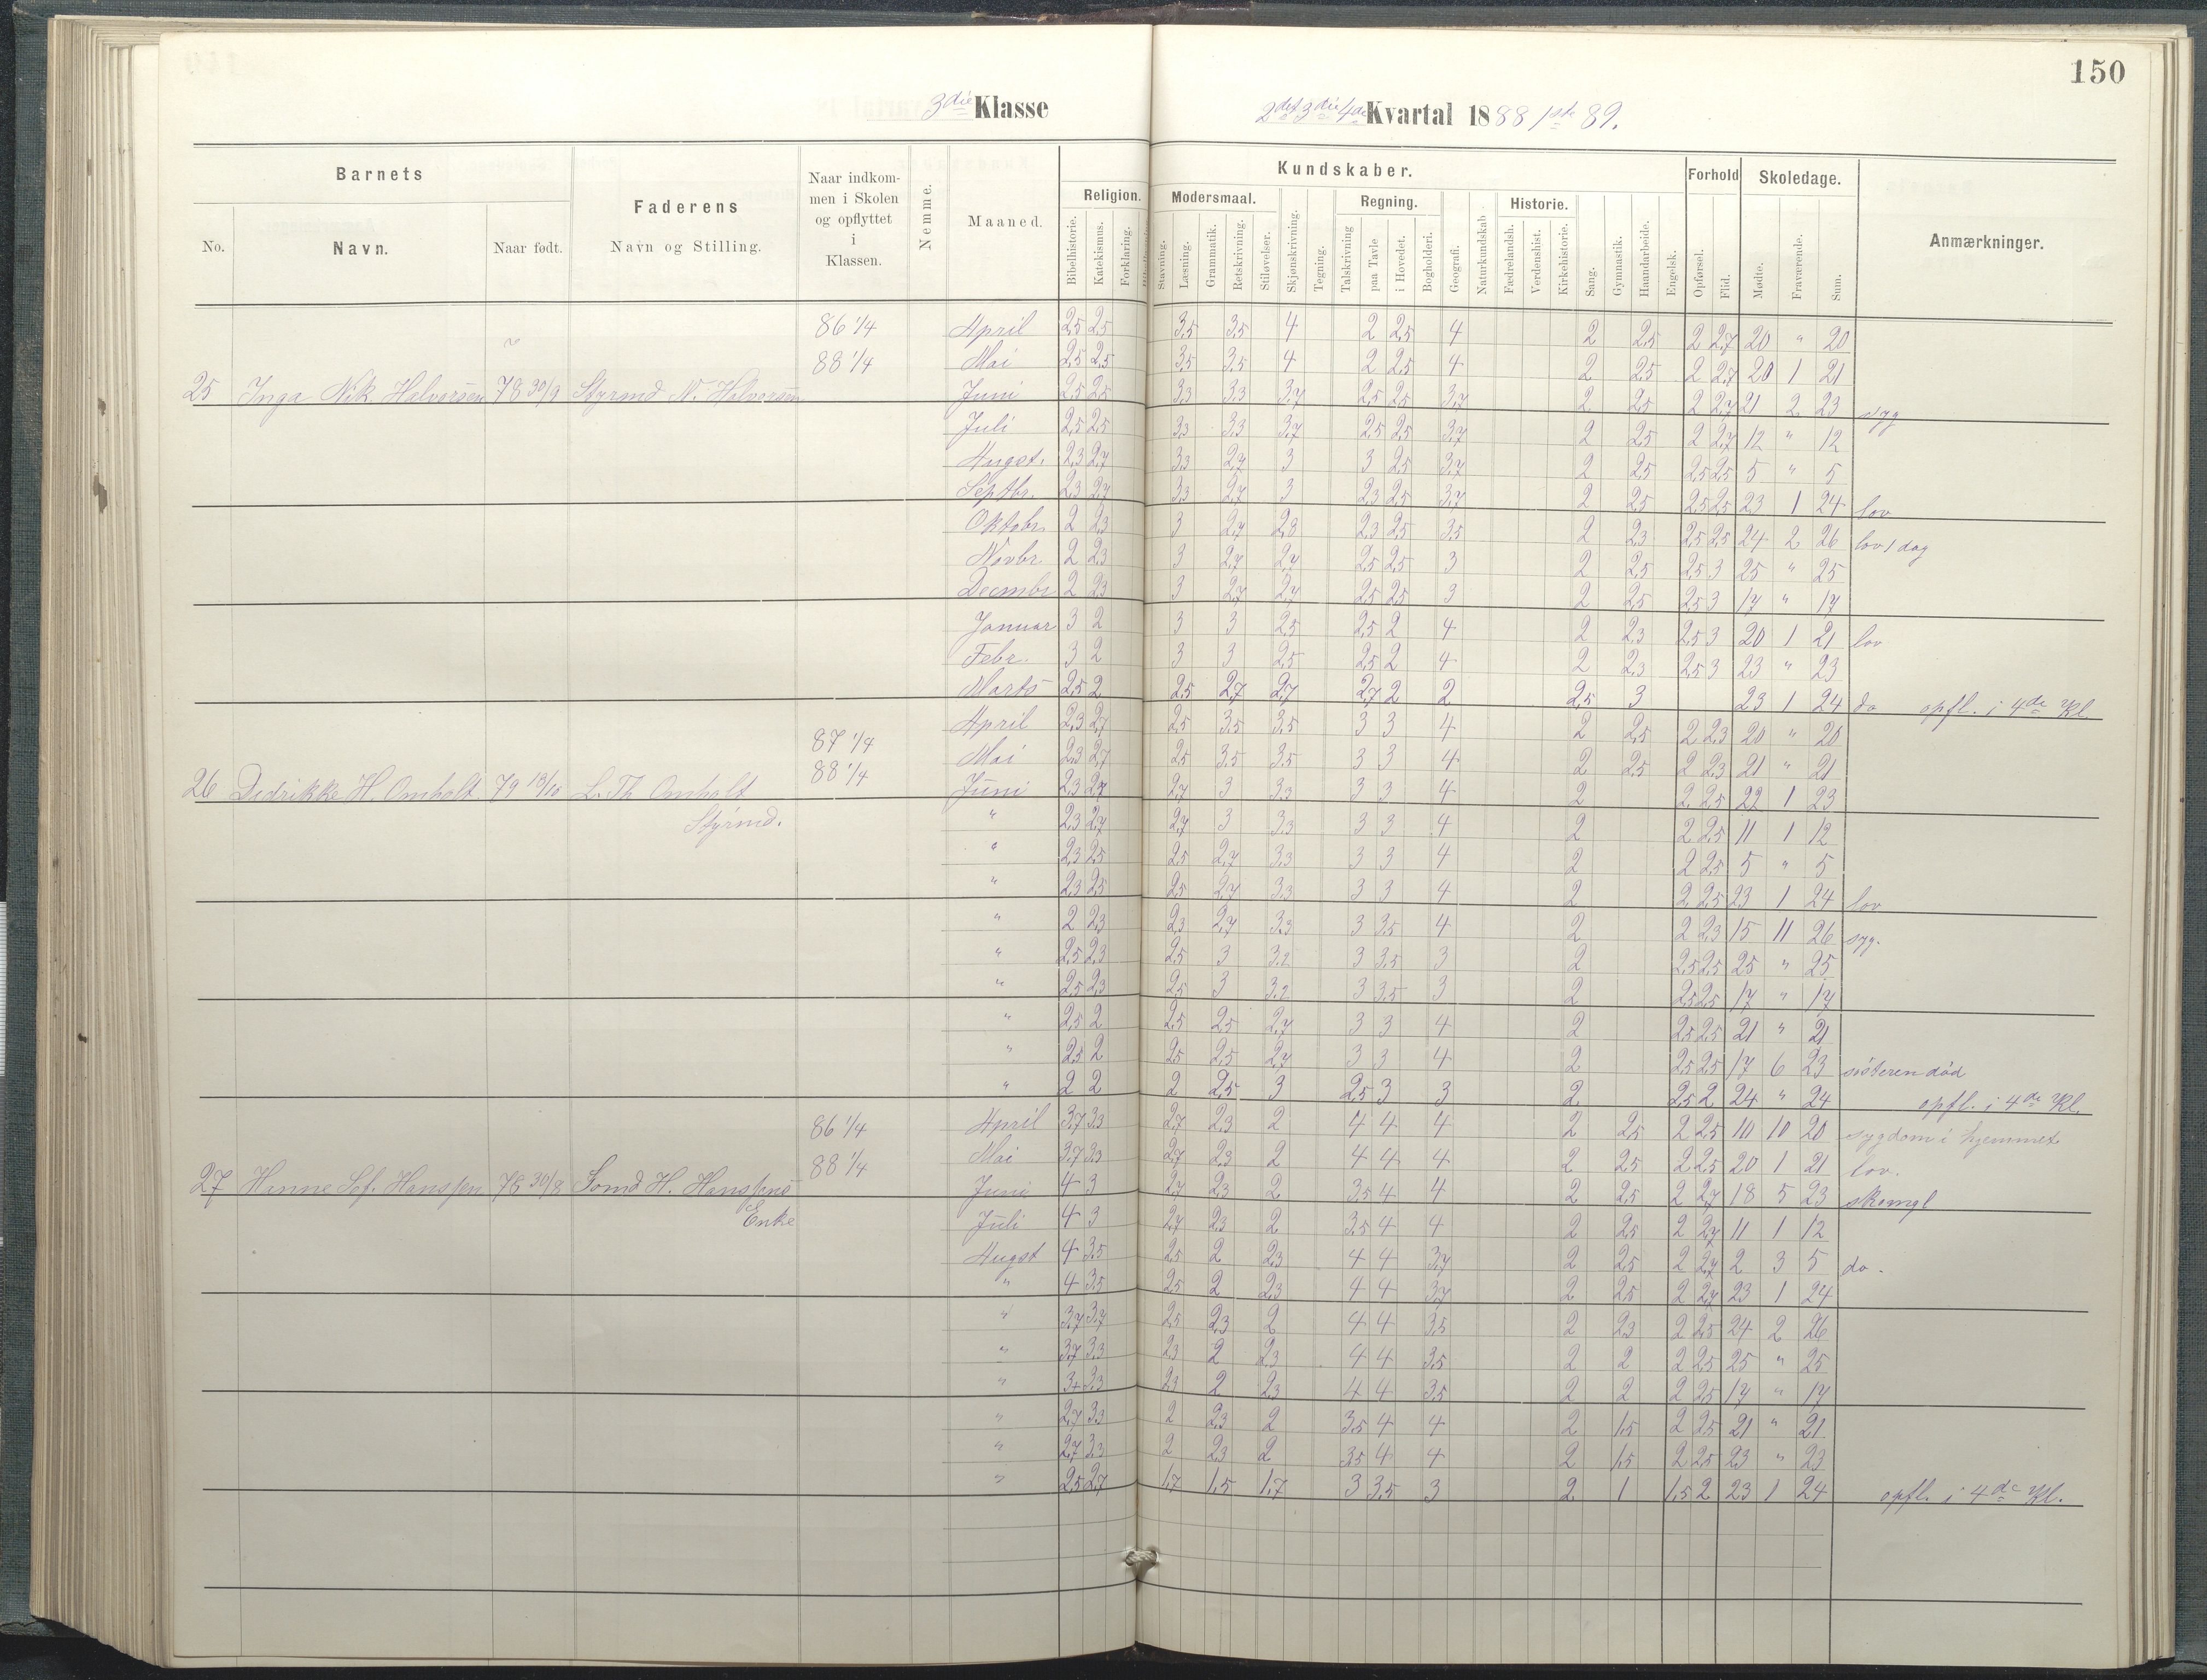 150
3die Klasse
2det 3die 4de Kvartal 1888 1ste 89.
Barnets
No.
Navn.
Naar født.
Faderens
Navn og Stilling.
Naar indkom-
men i Skolen
og opflyttet
i
Klassen.
Nemme.
Maaned.
Kundskaber.
Religion.
Bibelhistorie.
Katekismus.
Forklaring.
Modersmaal.
Stavning.
Læsning.
Grammatik.
Retskrivning.
Stiløvelser.
Skjønskrivning.
Tegning.
Regning.
Talskrivning
paa Tavle
i Hovedet.
Bogholderi.
Geografi.
Naturkundskab.
Historie.
Fædrelandsh.
Verdenshist.
Kirkehistorie.
Sang.
Gymnastik.
Haandarbeide.
Engelsk.
Forhold
Opførsel.
Flid.
Skoledage.
Mødte.
Fraværende.
Sum.
Anmærkninger.
86 1/4 April 2,5 2,5 3,5 3,5 4 2 2,5 4 2 2,5 2 2,7 20 " 20
88 1/4 Mai 2,5 2,5 3,5 3,5 4 2 2,5 4 2 2,5 2 2,7 20 1 21
25 Inga Nik. Halvorsen 78 30/9 Styrmd N. Halvorsen Juni 2,5 2,5 3,3 3,3 3,7 2,5 2,5 3,7 2 2,5 2 2,7 21 2 23 syg
Juli 2,5 2,5 3,3 3,3 3,7 2,5 2,5 3,7 2 2,5 2 2,7 12 " 12
Augst. 2,3 2,7 3,3 2,7 3 3 2,5 3,7 2 2,5 2,5 2,5 5 " 5
Septbr. 2,3 2,7 3,3 2,7 3 2,3 2,5 3,7 2 2,5 2,5 2,5 23 1 24 lov
Oktobr. 2 2,3 3 2,7 2,8 2,3 2,5 3,5 2 2,3 2,5 2,5 24 2 26 lov 1 dag
Novbr. 2 2,3 3 2,7 2,7 2,5 2,5 3 2 2,5 2,5 3 25 " 25
Decmbr 2 2,3 3 2,7 2,7 2,5 2,5 3 2 2,5 2,5 3 17 " 17
Januar 3 2 3 3 2,5 2,5 2 4 2 2,3 2,5 3 20 1 21 lov
Febr. 3 2 3 3 2,5 2,5 2 4 2 2,3 2,5 3 23 " 23
Marts 2,5 2 2,5 2,7 2,7 2,7 2 2 2,5 3 23 1 24 do opfl. i 4de Kl.
April 2,3 2,7 2,5 3,5 3,5 3 3 4 2 2,5 2 2,3 20 " 20
87 1/4 Mai 2,3 2,7 2,5 3,5 3,5 3 3 4 2 2,5 2 2,3 21 " 21
88 1/4
26 Dedrikke H. Omholt 79 13/10 L. Th. Omholt Juni 2,3 2,7 2,7 3 3,3 3 3 4 2 2 2,5 22 1 23
Styrmd. " 2,3 2,7 2,7 3 3,3 3 3 4 2 2 2,5 11 1 12
" 2,3 2,5 2,5 2,7 3,3 3 3 4 2 2 2,5 5 " 5
" 2,3 2,5 2,5 2,7 3,3 3 3 4 2 2 2,5 23 1 24 lov
" 2 2,3 2,3 2,7 3,3 3 3,5 4 2 2 2,3 15 11 26 syg.
" 2,5 2,3 2,5 3 3,2 3 3,5 3 2 2,5 2,5 25 " 25
" 2,5 2,3 2,5 3 3,2 3 3,5 3 2 2,5 2,5 17 " 17
" 2,5 2 2,5 2,5 2,7 3 3 4 2 2,5 2,5 21 " 21
" 2,5 2 2,5 2,5 2,7 3 3 4 2 2,5 2,5 17 6 23 søsteren død
" 2 2 2 2,5 3 2,5 3 3 2 2,5 2 24 " 24 opfl. i 4de Kl.
86 1/4 April 3,7 3,3 2,7 2,3 2 4 4 4 2 2,5 2 2,5 10 10 20 sygdom i hjemmet
88 1/4 Mai 3,7 3,3 2,7 2,3 2 4 4 4 2 2,5 2 2,5 20 1 21 lov.
27 Hanne Sof. Hanssen 78 30/8 Somd H. Hanssens Juni 4 3 2,7 2,3 2 3,5 4 4 2 2,5 2 2,7 18 5 23
Enke Juli 4 3 2,7 2,3 2 3,5 4 4 2 2,5 2 2,7 11 1 12
Augst 4 3,5 2,5 2 2,3 4 4 3,7 2 2,5 2 2,7 2 3 5 do.
" 4 3,5 2,5 2 2,3 4 4 3,7 2 2,5 2 2,7 23 1 24
" 3,7 3,7 2,5 2,3 2 4 4 3,5 2 2,3 2 2,5 24 2 26
" 3,7 3,3 2,3 2 2,3 4 4 3,5 2 2 2 2,5 25 " 25
" 3,3 2,3 2 2,3 4 4 3,5 2 2 2 2,5 17 " 17
" 2,7 3,3 2 2,3 2 3,5 4 4 2 1,5 2 2,5 21 " 21
" 2,7 3,3 2 2,3 2 3,5 4 4 2 1,5 2 2,5 23 " 23
" 2,5 2,7 1,7 1,5 1,7 3 3,5 3 2 1 1,5 2 23 1 24 opfl. i 4de Kl.